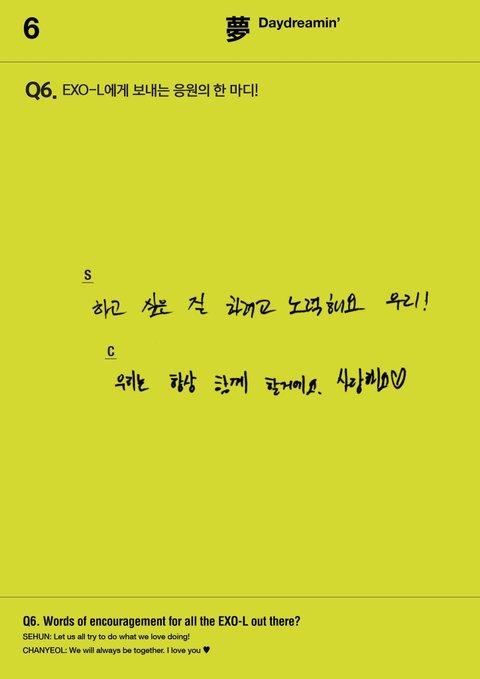 6
夢 Daydreamin'
Q6. EXO-L에게 보내는 응원의 한 마디!
S
하고 싶은 걸 하려고 노력해요 우리!
C
우리는 항상 함께 할거에요. 사랑해요♡
Q6. Words of encouragement for all the EXO-L out there?
SEHUN: Let us all try to do what we love doing!
CHANYEOL: We will always be together. I love you ♥